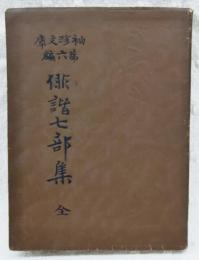 袖珍文庫
第六編
俳諧七部集
全